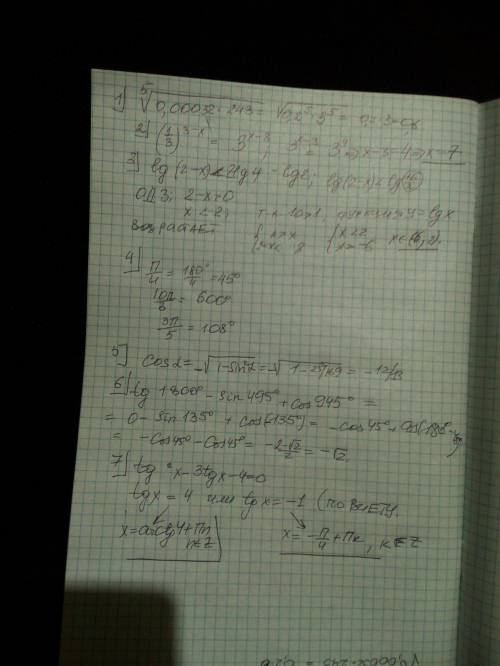 1) ⁵√0,00032·243 = √0,2⁵·3⁵ = 0,2·3=0,6
2) (1/3)^(3-x) = 3^(x-3); 3^(x-3) = 3⁴ ⇒ x-3=4 ⇒ x=7
3) lg(2-x)<2lg4 - lg2; lg(2-x)<lg
ОДЗ: 2-x>0
x<2; т.к. 10>1, функция y=lgx
возрастает { { x<2 x>-6 x∈(-6;2).
4) π/4 = 180°/4 = 45°
10π/3 = 600°
3π/5 = 108°
5) cosα = -√1-sin²α = -√1-25/169 = -12/13
6) tg 1800° - sin 495° + cos 945° =
= 0 - sin 135° + cos(-135°) = -cos45° + cos(180°-
= -cos45° - cos45° = -2·√2/2 = -√2.
7) tg²x - 3tgx - 4=0
tgx = 4 или tgx = -1 (по ВИЕТУ.
x=arctg4+πn, n∈Z x= -π/4 + πk, k∈Z